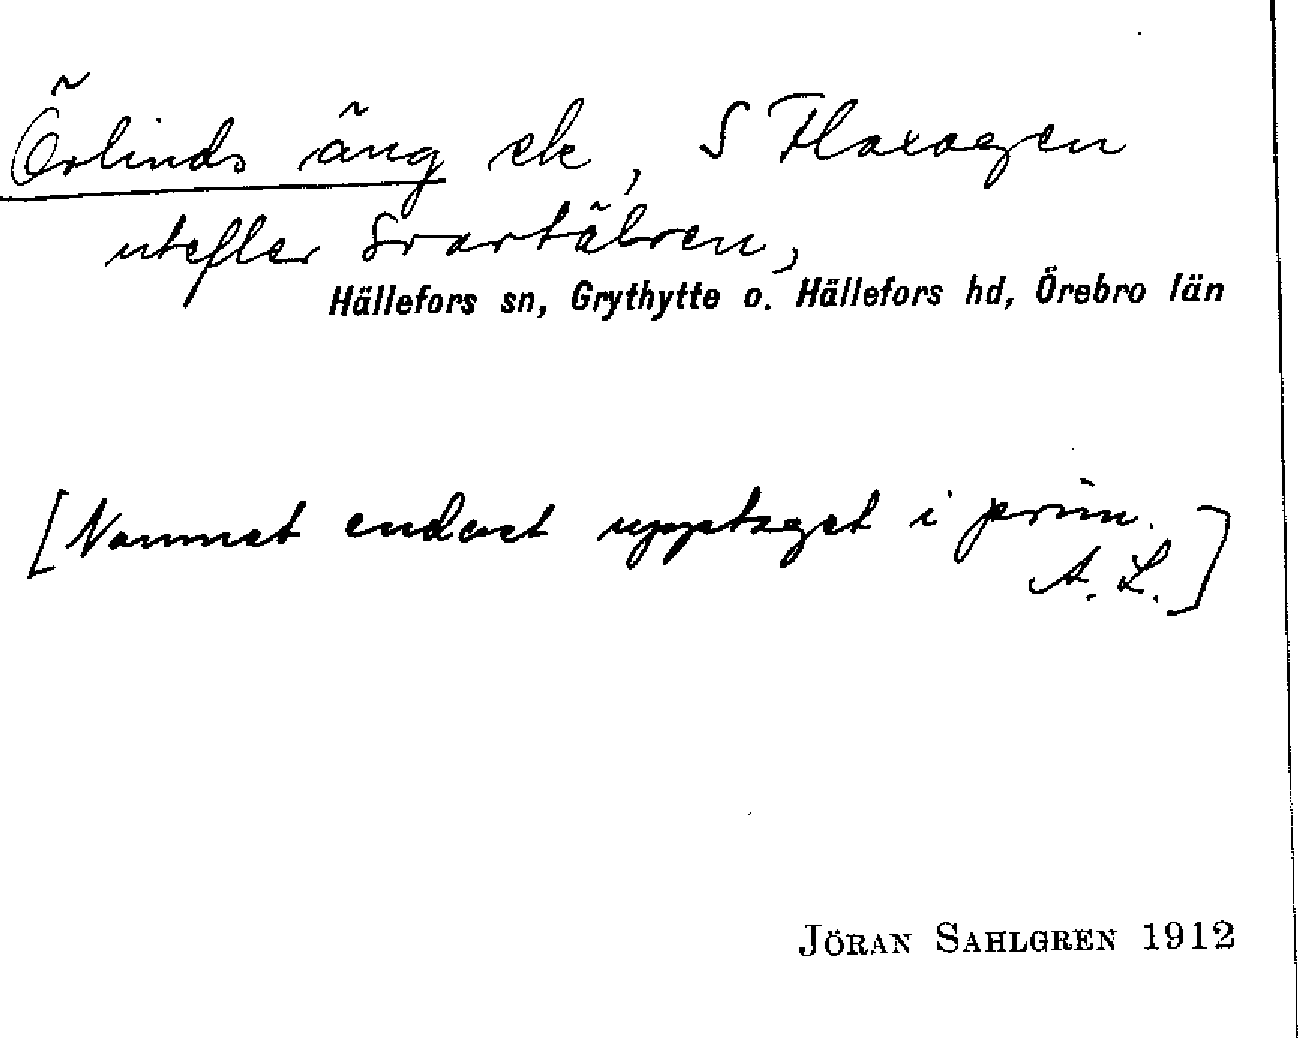 Örlinds äng ek, S Flaxagen
utefter Svartälven,
Hällefors sn, Grythytte o. Hällefors hd, Örebro län
[Namnet endast upptaget i prim.
A. L.]
JÖRAN SAHLGREN 1912